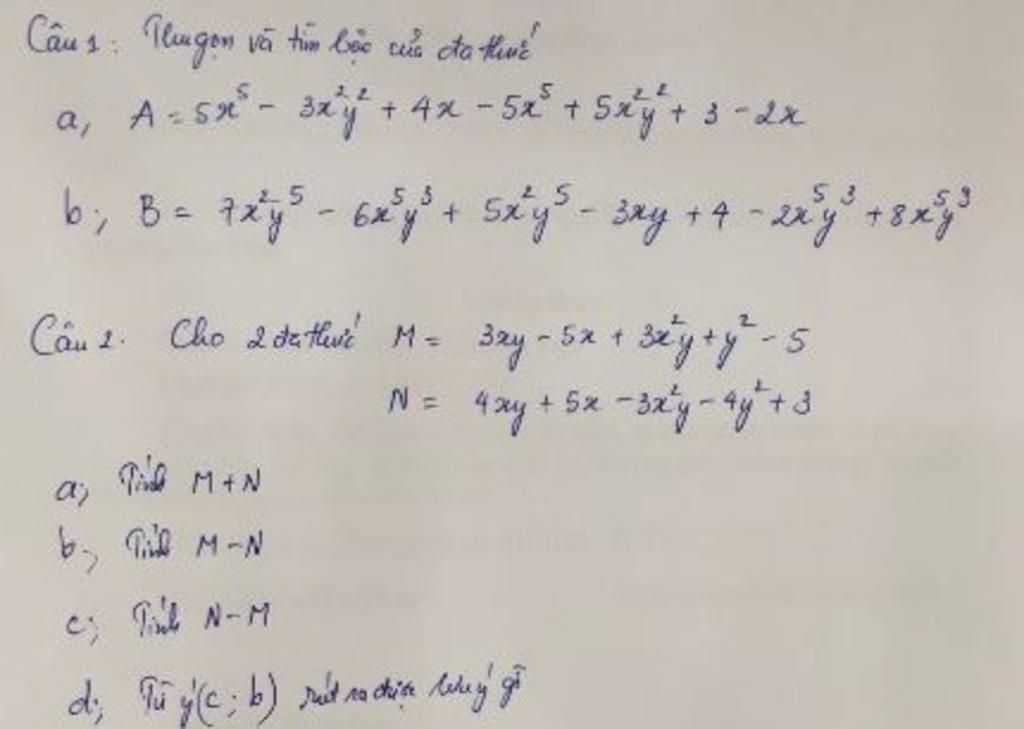 Câu 1: Thu gọn và tìm bậc của đa thức
a, A = 5x⁵ - 3x²y² + 4x - 5x⁵ + 5x²y² + 3 - 2x
b, B = 7x²y⁵ - 6x⁵y³ + 5x²y⁵ - 3xy + 4 - 2x⁵y³ + 8x⁵y³
Câu 2. Cho 2 đa thức M = 3xy - 5x + 3x²y + y² - 5
N = 4xy + 5x - 3x²y - 4y² + 3
a, Tính M + N
b, Tính M - N
c, Tính N - M
d, Từ ý (c; b) rút ra được lưu ý gì